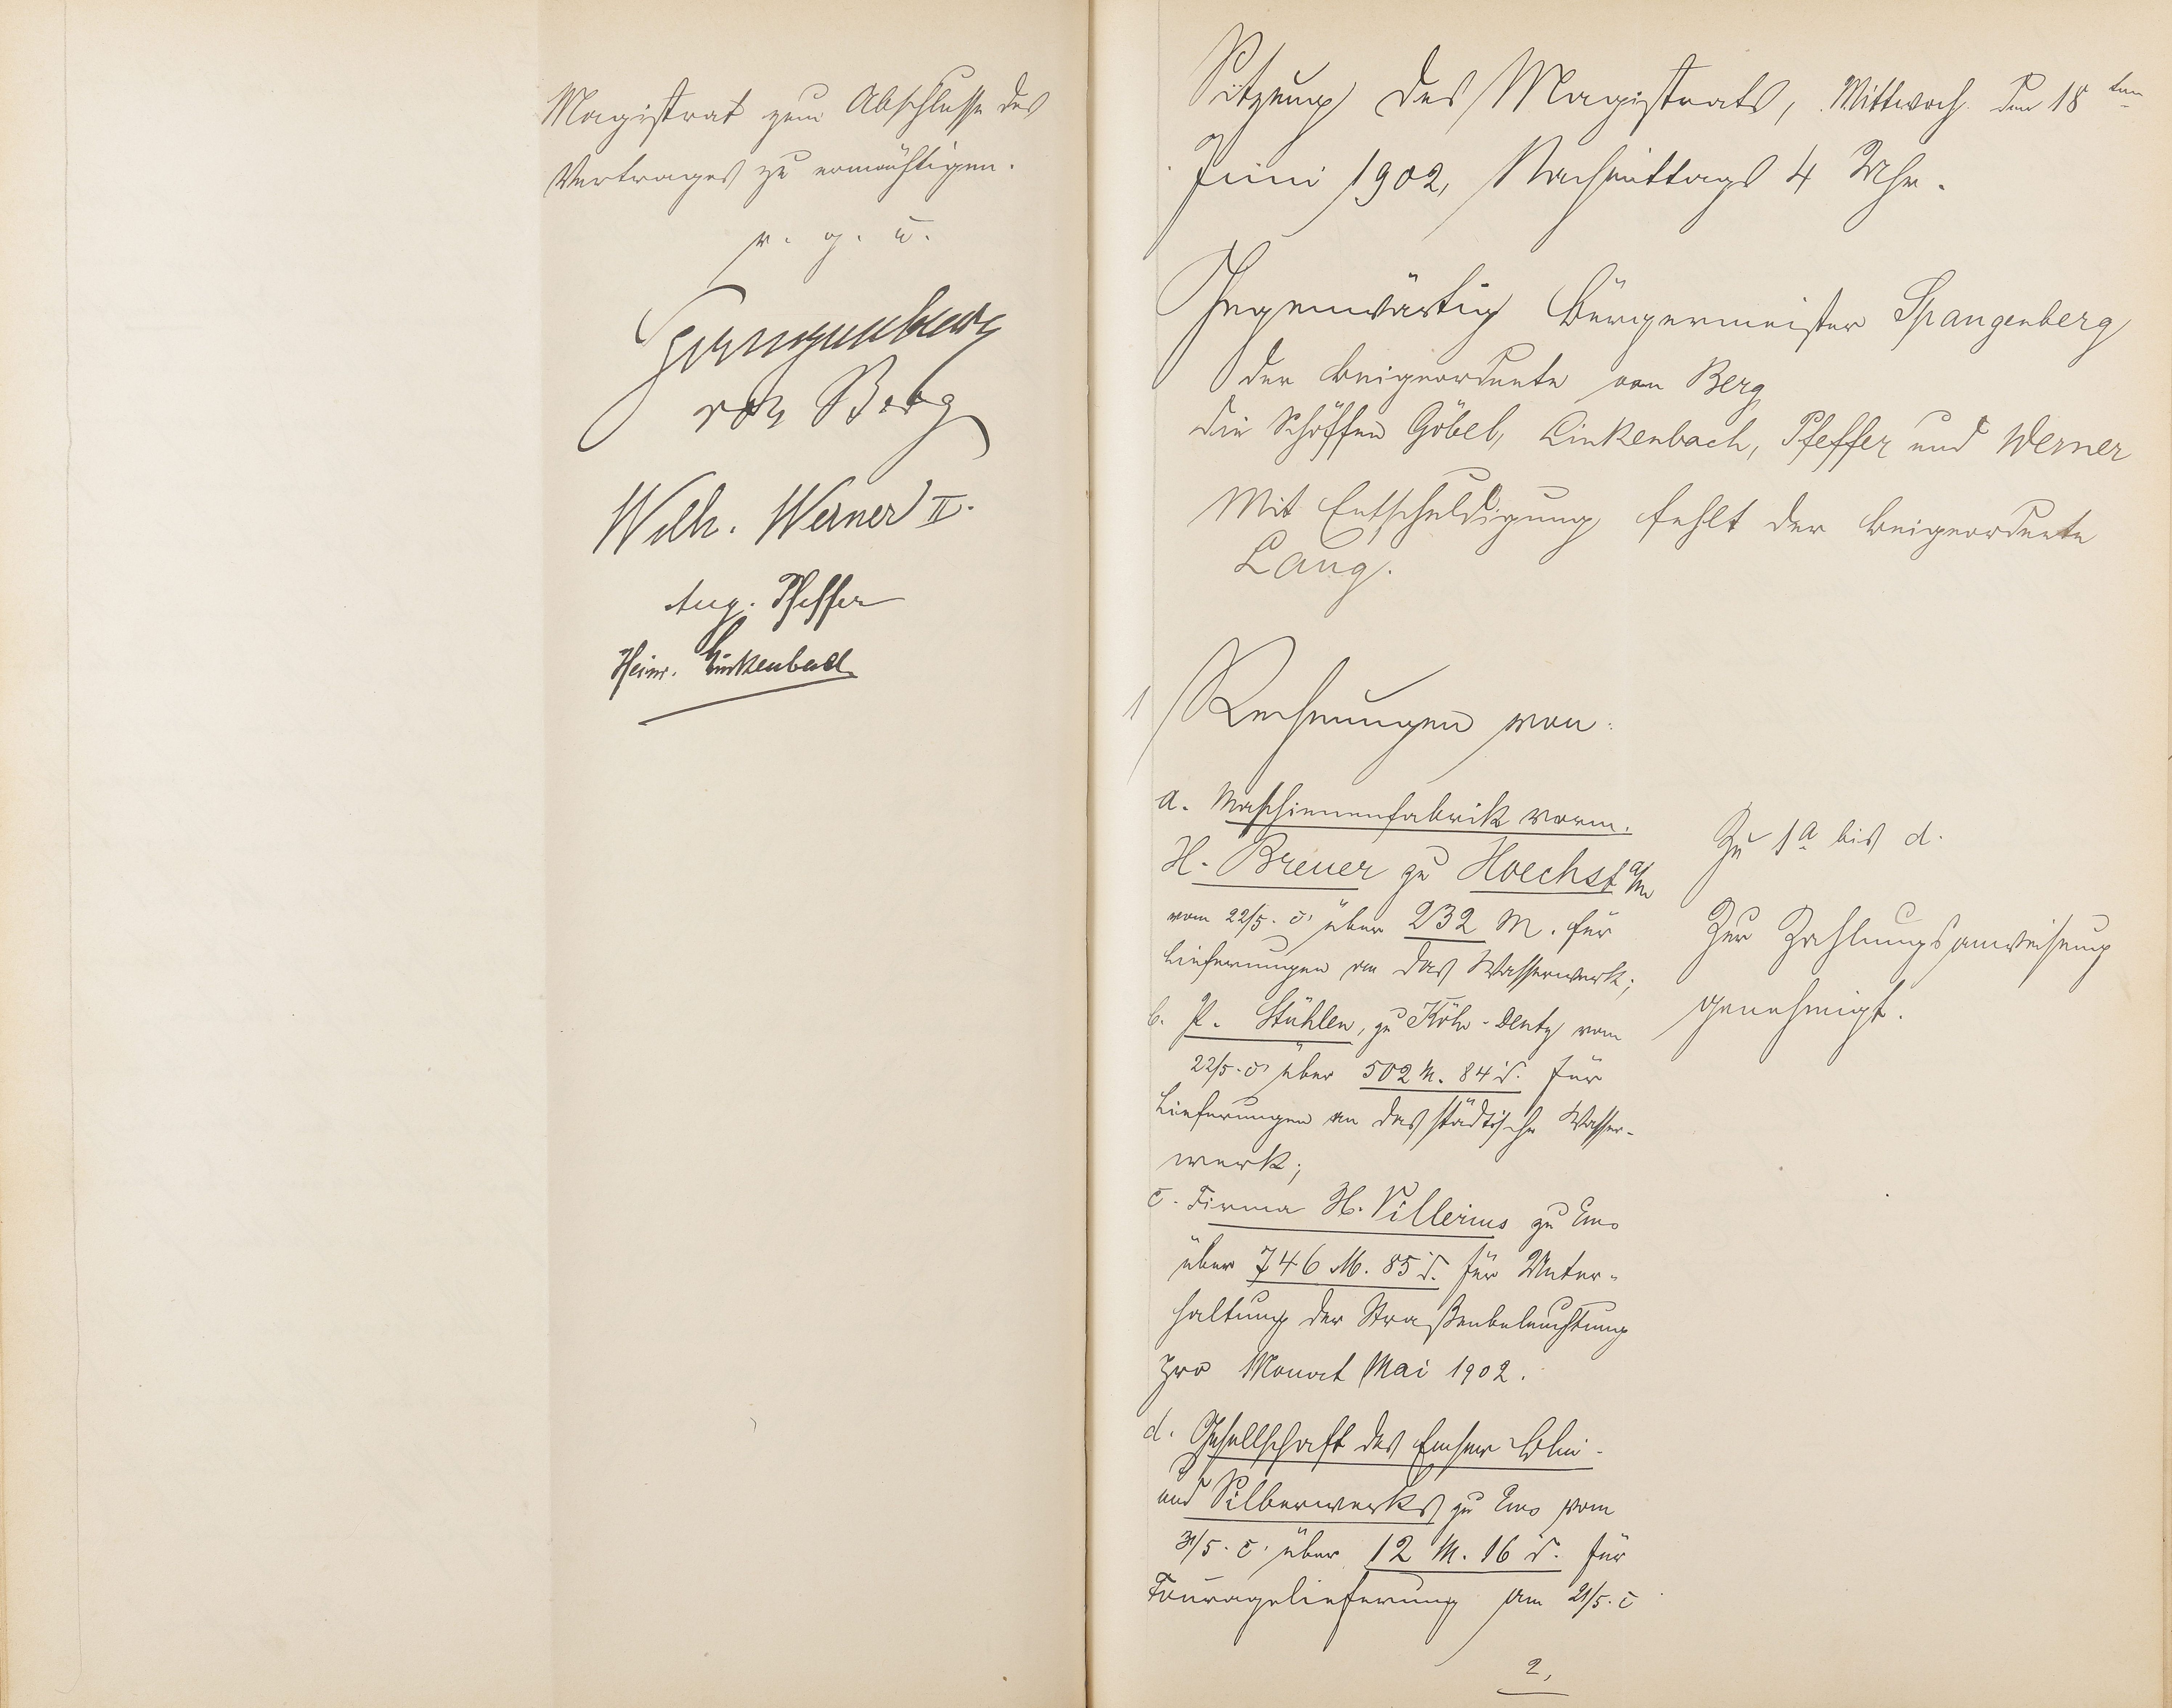 Magistrat zum Abschlusse des
Vertrages zu ermächtigen.
v. g. u.
Spangenberg
von Berg
Wilh. Werner II.
Aug. Pfeffer
Heinr. Linkenbach
Sitzung des Magistrats, Mittwoch den 18ten
Juni 1902, Nachmittags 4 Uhr.
Gegenwärtig Bürgermeister Spangenberg
der Beigeordnete von Berg
die Schöffen Göbel, Linkenbach, Pfeffer und Werner
Mit Entschuldigung fehlt der Beigeordnete
Lang.
1 Rechnungen von:
a. Maschinenfabrik vorm.
H. Breuer zu Hoechst a/M
vom 22/5. c. über 232 M. für
Lieferungen an das Wasserwerk;
b. P. Stühlen, zu Köln-Deutz vom
22/5. c. über 502 M. 84 d. für
Lieferungen an das städtische Wasser-
werk;
c. Firma H. Villerius zu Ems
über 746 M. 85 d. für Unter-
haltung der Straßenbeleuchtung
pro Monat Mai 1902.
d. Gesellschaft des Emser Blei-
und Silberwerks zu Ems vom
31/5. c. über 12 M. 16 d. für
Fouragelieferung am 21/5. c
Zu 1a bis d.
Zur Zahlungsanweisung
genehmigt.
2,